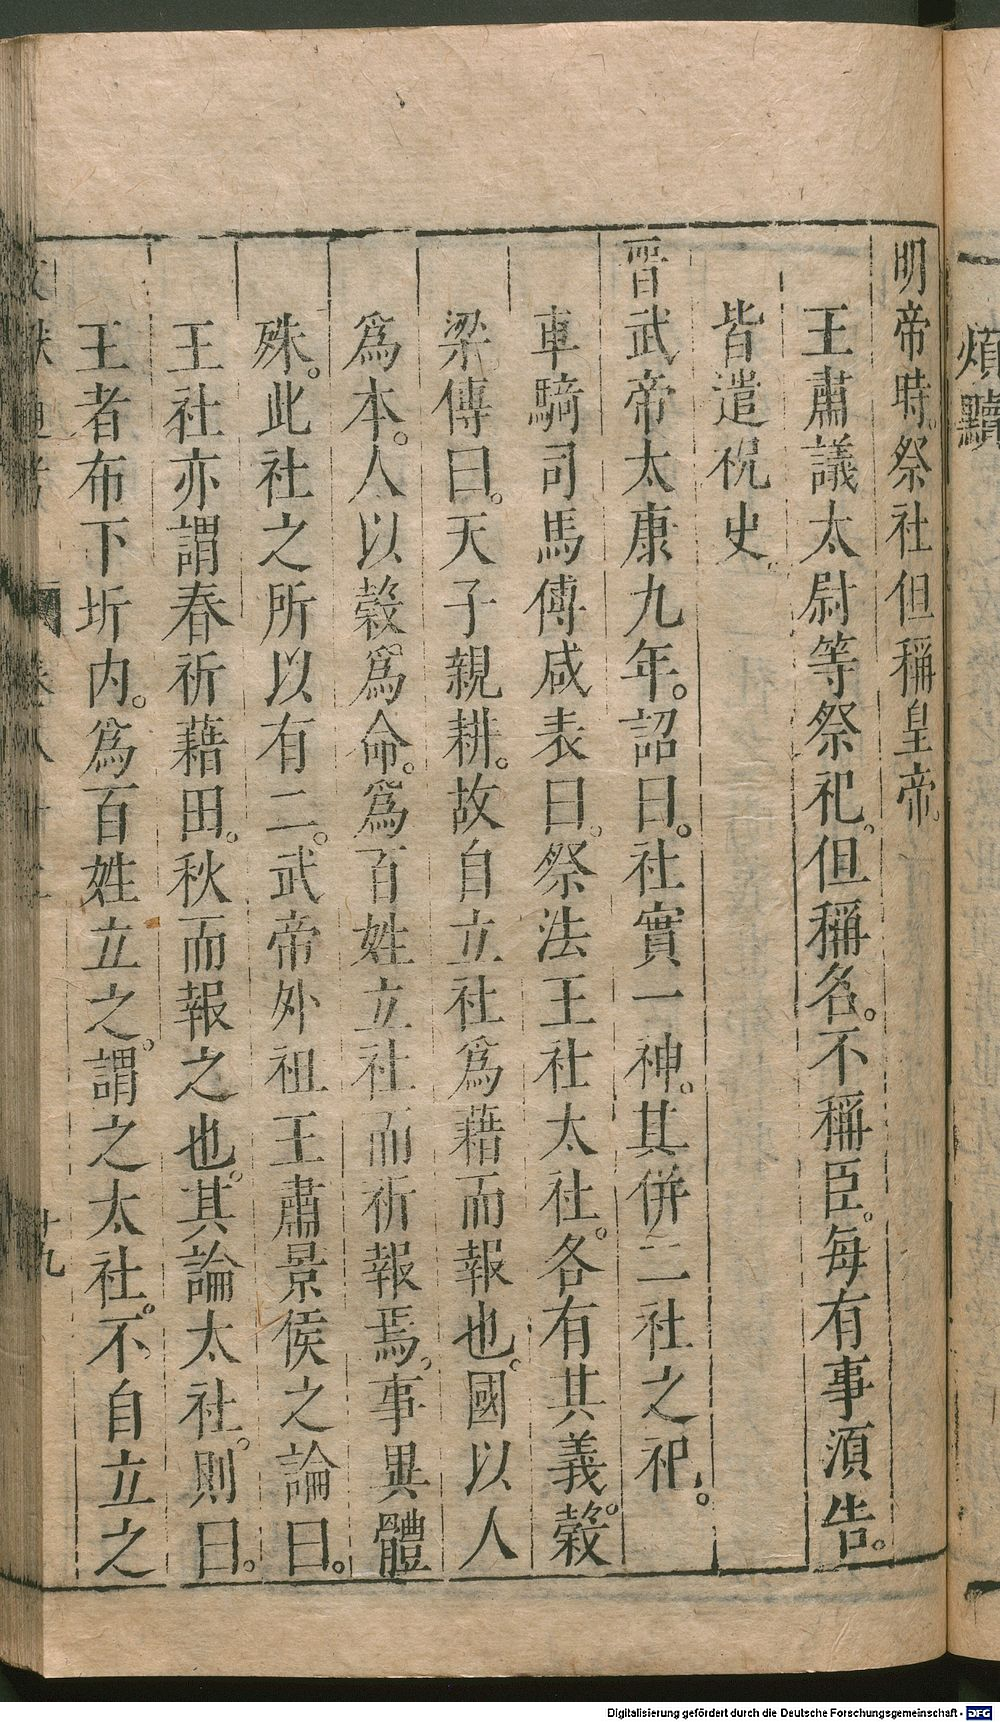 煩黷
明帝時。祭社但稱皇帝。
王肅議太尉等祭祀。但稱名。不稱臣。每有事須告。
皆遣祝史。
晉武帝太康九年。詔曰。社實一神。其併二社之祀。
車騎司馬傅咸表曰。祭法王社太社。各有其義。穀
梁傳曰。天子親耕。故自立社爲藉而報也。國以人
爲本。人以穀爲命。爲百姓立社而祈報焉。事異體
殊。此社之所以有二。武帝外祖王肅景侯之論曰。
王社亦謂春祈藉田。秋而報之也。其論太社。則曰。
王者布下圻内。爲百姓立之。謂之太社。不自立之
文獻通考 卷八十二 廿九
Digitalisierung gefördert durch die Deutsche Forschungsgemeinschaft - DFG